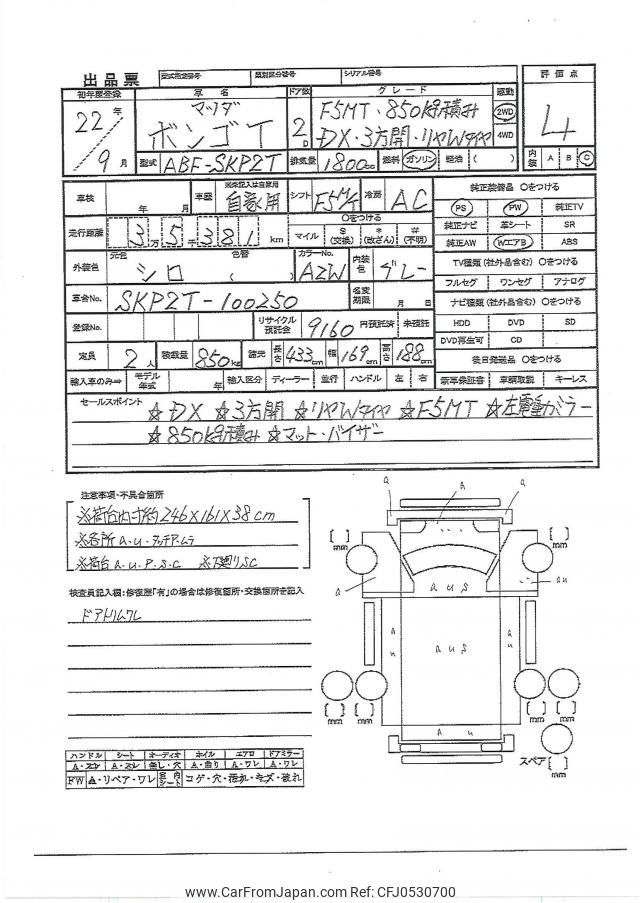 出品票 型式指定番号 類別区分番号 シリアル番号
初年度登録 車名 ドア数 グレード 駆動 評価点
22年 マツダ F5MT・850kg積み 2WD 4
9月 ボンゴT 2D DX・3方開・リヤWタイヤ 4WD
型式 ABF-SKP2T 排気量 1800cc 燃料 ガソリン 軽油 ( ) 内装 A B C
車検 年 月 車歴 ※未記入は自家用 自家用 シフト F5M/T 冷房 AC 純正装備品 〇をつける
PS PW 純正TV
走行距離 3万5千381km 〇をつける
マイル $(交換) *(改ざん) #(不明) 純正ナビ 革シート SR
純正AW WエアB ABS
外装色 元色 シロ 色替 ( ) カラーNo. AZW 内装色 グレー TV種類(社外品含む) 〇をつける
フルセグ ワンセグ アナログ
車台No. SKP2T-100250 名変期限 月 日 ナビ種類(社外品含む) 〇をつける
登録No. リサイクル預託金 9160円預託済 未預託 HDD DVD SD
DVD再生可 CD
定員 2人 積載量 850kg 諸元 長さ 433cm 幅 169cm 高さ 188cm 後日発送品 〇をつける
輸入車のみ⇒ モデル年式 年 輸入区分 ディーラー 並行 ハンドル 左 右 新車保証書 車輌取説 キーレス
セールスポイント ☆DX ☆3方開 ☆リヤWタイヤ ☆F5MT ☆左電動ミラー
☆850kg積み ☆マット・バイザー
注意事項・不具合箇所
※荷台内寸約246×161×38cm
※各所a.u.タッチアトムラ
※荷台a.u.P.S.C ※下廻りSC
検査員記入欄:修復歴「有」の場合は修復箇所・交換箇所を記入
ドアトリムワレ
ハンドル シート オーディオ ホイル エアロ ドアミラー
A・スレ A・スレ 無し・穴 A・曲り A・ワレ A・ワレ
FW A・リペア・ワレ 室内シート コゲ・穴・汚れ・キズ・破れ
a a a
[ ] mm [ ] mm
a a u s a u
a u a u s a u
[ ] mm [ ] mm [ ] mm [ ] mm
a u
スペア [ ] mm
www.CarFromJapan.com Ref: CFJ0530700